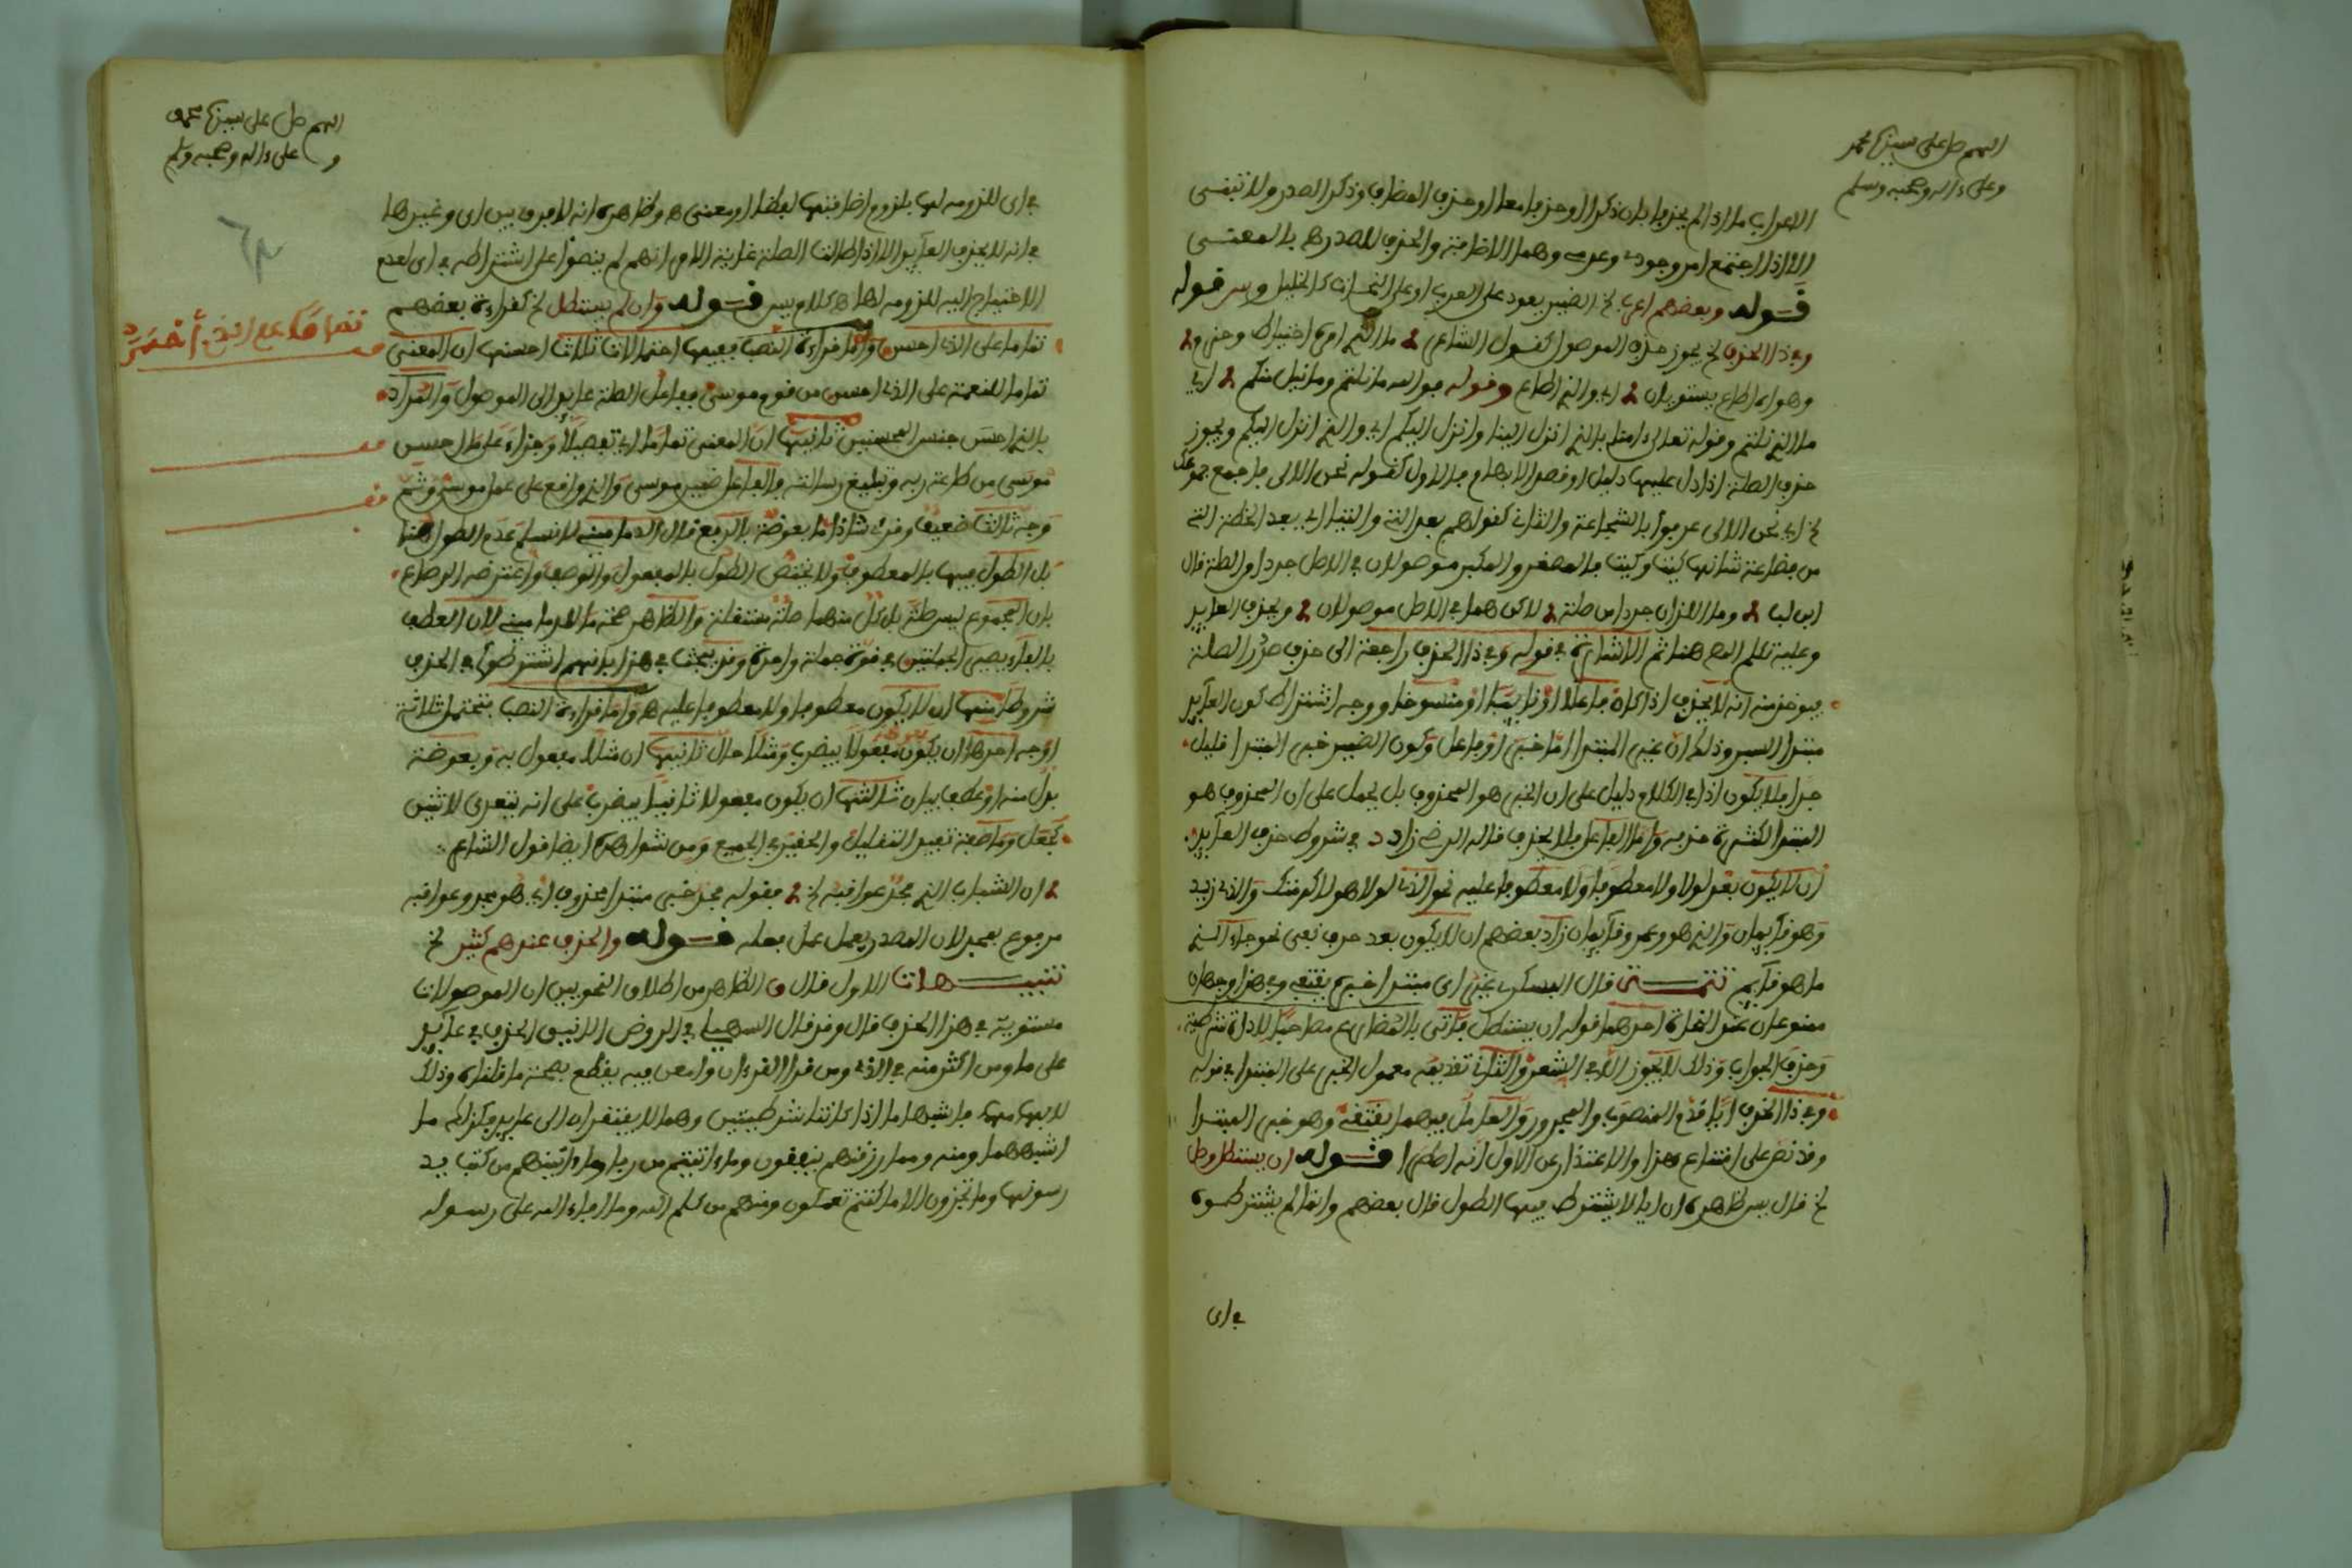 اللهم صل على سيدنا محمد
وعلى ءاله وصحبه وسلم
الاعراب ما اذا لم يحذفا بان ذكرا او حذفا معا او حذف المضاف وذكر الصدر ولا تبنى
الا اذا اجتمع امر وجودي وعدمي وهما الاضافة والحذف لصدرها بالمعنى
قوله وبعضهم اعرب الخ الضمير يعود على العرب او على النحاة كالخليل ويس قوله
وفي ذا الحذف الخ يجوز حذف الموصول كقول الشاعر ما الذي دابه احتياط وحزم
وهواه اطاع يستويان اي والذي اطاع وقوله فوالله ما نلتم وما نيل منكم اي
ما الذي نلتم وقوله تعالى ءامنا بالذي انزل الينا وانزل اليكم اي والذي انزل اليكم ويجوز
حذف الصلة اذا دل عليها دليل او قصد الابهام فالاول كقوله نحن الالى فاجمع جموعك
الخ اي نحن الالى عرفوا بالشجاعة والثاني كقولهم بعد اللتيا والتي اي بعد الخطة التي
من فظاعة شانها كيت وكيت فالمصغر والمكبر موصولان في الاصل جردا والصلة قال
ابن لب وما اللذان جردا من صلة لاكن هما في الاصل موصولان ويحذف العايد
وعليه تكلم المص هنا ثم الاشارة في قوله وفي ذا الحذف راجعة الى حذف صدر الصلة
فيوخذ منه انه لا يحذف اذا كان فاعلا او نايبا او منسوخا ووجه اشتراط كون العايد
مبتدا
المبتدا لكثرة حذفه واما الفاعل فلا يحذف قاله الرضي زاد د في شروط حذف العايد
ان لا يكون بعد لولا ولا معطوفا ولا معطوفا عليه نحو الذي لولا هو لاكرمتك والذي زيد
وهو قايمان والذي هو وعمرو قايمان زاد بعضهم ان لا يكون بعد حرف نفي نحو جاء الذي
ما هو قايم تتمة قال
ممنوعان عند النحاة احدهما قوله ان يستطل فاتى بالمضارع مصاحبا لاداة شرطية
وحذف الجواب وذلك لا يجوز الا في الشعر والثاني تقديمه معمول الخبر على المبتدا في قوله
وفي ذا الحذف ايا فقدم المنصوب والمجرور والعامل فيهما يقتفي وهو خبر المبتدا
وقد نص على امتناع هذا والاعتذار عن الاول انه اضطر قوله ان يستطل وصل
الخ قال يس ظاهره ان ايا لا يشترط فيها الطول قال بعضهم وانما لم يشترطوه
في اي
اللهم صل على سيدنا محمد
وعلى ءاله وصحبه وسلم
في اي للزومه لها بلزوم اضافتها لفظا او معنى ه وظاهره انه لا فرق بين اي وغيرها
في انه لا يحذف العايد الا اذا طالت الصلة غاية الامر انهم لم ينصوا على اشتراطه في اي لعدم
الاحتياج اليه للزومه لها ه كلام يس قوله وان لم يستطل الخ كقراءة بعضهم
تماما على الذي احسن واما قراءة النصب ففيها احتمالات ثلاث احسنها ان المعنى
تماما للنعمة على الذي احسن من قوم موسى ففاعل الصلة عايد الى الموصول والمراد
بالذي احسن جنس المحسنين ثانيها ان المعنى تماما اي تفصيلا وجزاء على ما احسن
موسى من طاعة ربه وتبليغ رسالته والفاعل ضمير موسى والذي واقع على عمل موسى وثم
وجه ثالث ضعيف وقرئ شاذا ما بعوضة بالرفع قال الدماميني لا نسلم عدم الطول هنا
بل الطول فيها بالمعطوف ولا يختص الطول بالمفعول والوصف واعترضه الرصاع
بان المجموع ليس صلة بل كل منهما صلة مستقلة والظاهر صحة ما للدماميني لان العطف
بالفاء يصير الجملتين في قوة جملة واحدة وقد يبحث في هذا بكونهم اشترطوا في الحذف
شروطا منها ان لا يكون معطوفا ولا معطوفا عليه ه واما قراءة النصب فتحتمل ثلاثة
اوجه احدها ان يكون مفعولا بيضرب ومثلا حال ثانيها ان مثلا مفعول به وبعوضة
بدل منه او عطف بيان ثالثها ان يكون مفعولا ثانيا بيضرب على انه يتعدى لاثنين
كجعل وما صفة تفيد التقليل والحقير في الجميع ومن شواهده ايضا قول الشاعر
ان الشباب الذي مجد عواقبه الخ فقوله مجد خبر مبتدا محذوف اي هو مجد وعواقبه
مرفوع بمجد لان المصدر يعمل عمل فعله قوله والحذف عندهم كثير الخ
تنبيهات الاول قال ق الظاهر من اطلاق النحويين ان الموصولات
مستوية في هذا الحذف قال وقد قال السهيلي في الروض الانيق الحذف في عايد
على ما ومن اكثر منه في الذي ومن قرا القرءان وامعن فيه يقطع بصحة ما قلناه وذلك
لابهامهما فاشبها ما اذا كانتا شرطيتين وهما لا يفتقران الى عايد فكذلك ما
اشبههما ومنه ومما رزقنهم ينفقون وما ءاتيتم من ربا وما ءاتينهم من كتب يد
رسونها وما تجزون الا ما كنتم تعملون ومنهم من كلم الله وما افاء الله على رسوله